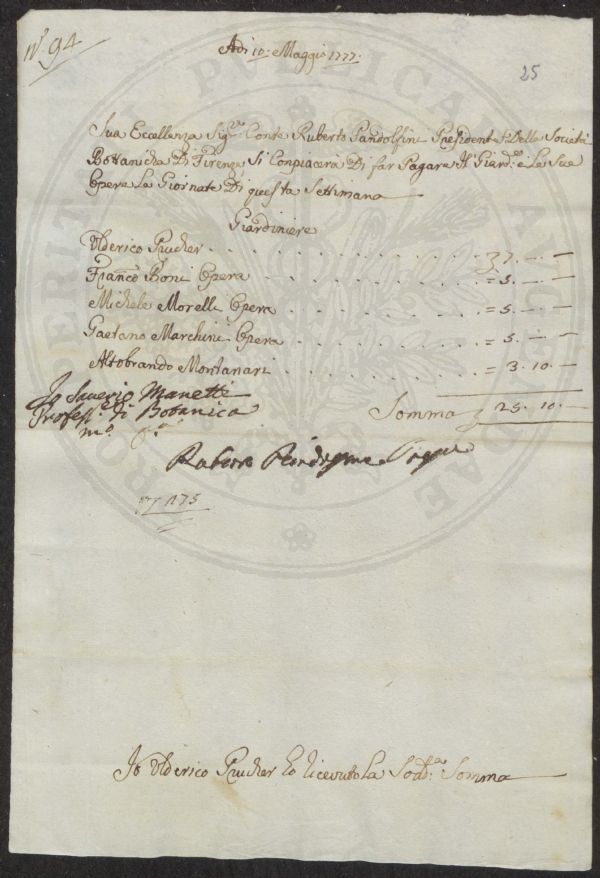 N° 94
Adi 10: Maggio 1777:
25
Sua Eccellenza Sig.re Conte Ruberto Pandolfini Presidente Della Società
Bottanicha Di Firenze Si Conpiacerà Di far Pagare Il Giard:e e Le Sue
Opere Le Giornate Di questa Settimana
Giardiniere
Ulderico Prucher . . . 7. — —
Franco Boni Opera . . . = 5. — —
Michele Morelli Opera . . . = 5. — —
Gaetano Marchini Opera . . . = 5. — —
Altobrando Montanari . . . = 3. 10. —
Somma 25. 10. —
Io Saverio Manetti
Profess. di Botanica
m.o p.a
Ruberto
175
Io Ulderico Prucher ho ricevuto La Sodd:a Somma